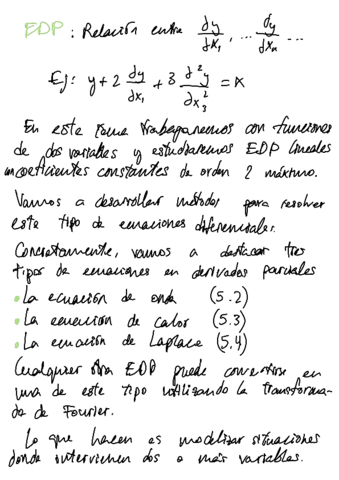 EDP: Relación entre ∂y/∂x₁, ... ∂y/∂xₙ ...
Ej: y + 2 ∂y/∂x₁ + 3 ∂²y/∂x₃² = x
En este tema trabajaremos con funciones
de dos variables y estudiaremos EDP lineales
con coeficientes constantes de orden 2 máximo.
Vamos a desarrollar métodos para resolver
este tipo de ecuaciones diferenciales.
Concretamente, vamos a destacar tres
tipos de ecuaciones en derivadas parciales
• La ecuación de onda (5.2)
• La ecuación de calor (5.3)
• La ecuación de Laplace (5.4)
Cualquier otra EDP puede convertirse en
una de este tipo utilizando la transforma-
da de Fourier.
Lo que hacen es modelizar situaciones
donde intervienen dos o más variables.